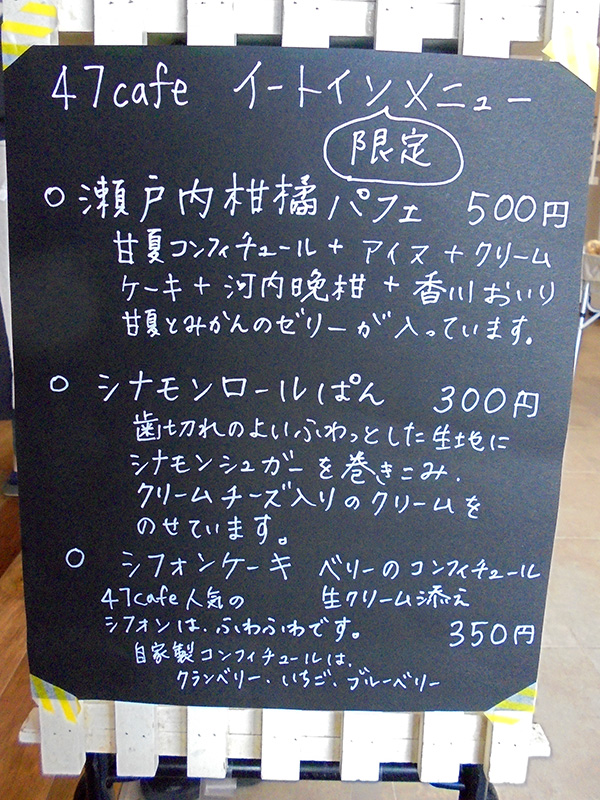 47cafe イートインメニュー
限定
○ 瀬戸内柑橘パフェ 500円
甘夏コンフィチュール + アイス + クリーム
ケーキ + 河内晩柑 + 香川おいり
甘夏とみかんのゼリーが入っています。
○ シナモンロールぱん 300円
歯切れのよいふわっとした生地に
シナモンシュガーを巻きこみ、
クリームチーズ入りのクリームを
のせています。
○ シフォンケーキ ベリーのコンフィチュール
47cafe人気の 生クリーム添え
シフォンは、ふわふわです。 350円
自家製コンフィチュールは、
クランベリー、いちご、ブルーベリー